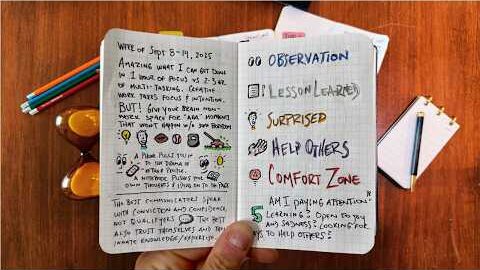 WEEK OF SEPT 8-14, 2025
AMAZING WHAT I CAN GET DONE
IN 1 HOUR OF FOCUS VS 2-3 HR
OF MULTI-TASKING. CREATIVE
WORK TAKES FOCUS & INTENTION.
BUT! GIVE YOUR BRAIN NON-
WORK SPACE FOR "AHA" MOMENTS
THAT WON'T HAPPEN W/O SOME BOREDOM
A PHONE PULLS YOU IN
TO THE DRAMA OF
OTHER PEOPLE.
A NOTEBOOK PUSHES YOUR
OWN THOUGHTS & IDEAS ON TO THE PAGE
THE BEST COMMUNICATORS SPEAK
WITH CONVICTION AND CONFIDENCE,
NOT QUALIFIERS THE BEST
ALSO TRUST THEMSELVES AND THEIR
INNATE KNOWLEDGE/EXPERTISE
OBSERVATION
LESSON LEARNED
SURPRISED
HELP OTHERS
COMFORT ZONE
5 AM I PAYING ATTENTION?
LEARNING? OPEN TO JOY
AND SADNESS? LOOKING FOR
WAYS TO HELP OTHERS?